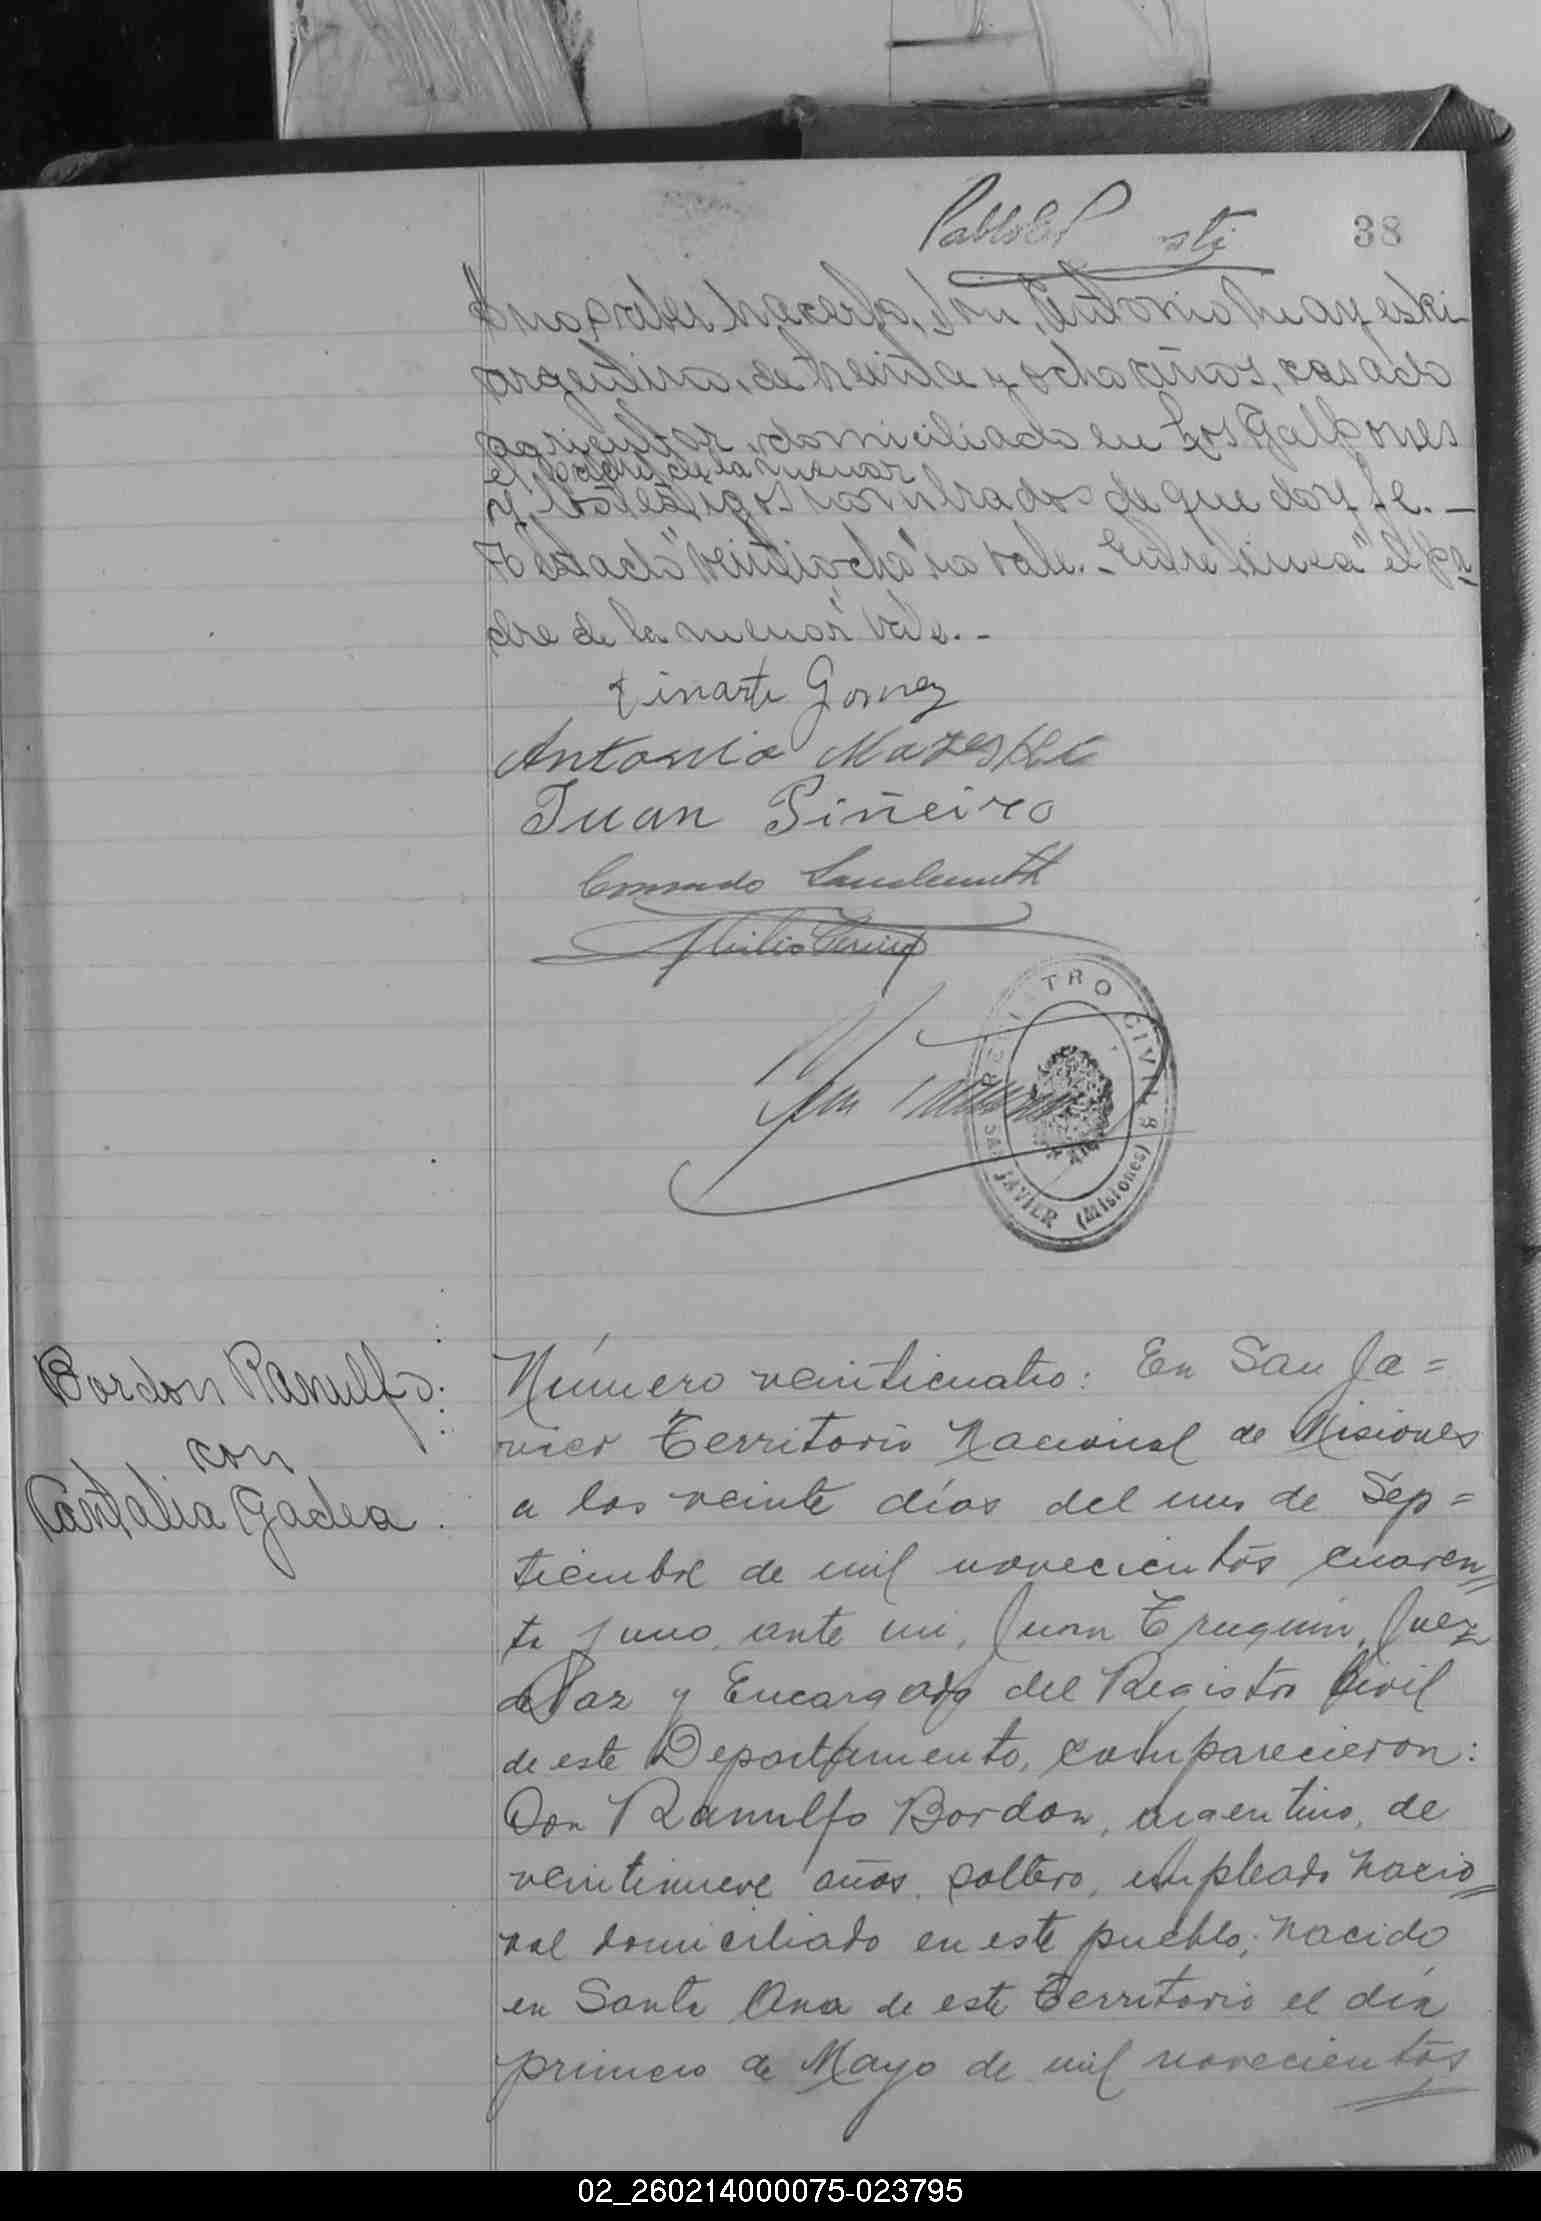 38
no saber hacerlo, Don, Antonio Mazeski
argentino, de treinta y ocho años, casado
agricultor, domiciliado en Los Galpones
el padre de la menor
y los testigos nombrados de que doy fe. —
Testado "veintiocho" no vale. - Entre linea "el pa-
dre de la menor" vale. -
Gomez
Antonio Mazeski
Juan Piñeiro
Conrado
REGISTRO CIVIL
SAN JAVIER (Misiones)
Bordon Ranulfo
con
Cantalia Gadea
Número veinticuatro: En San Ja=
vier Territorio Nacional de Misiones
a los veinte días del mes de Sep=
tiembre de mil novecientos cuaren=
ta y uno, ante mi, Juan Juez
de Paz y Encargado del Registro Civil
de este Departamento, comparecieron:
Don Ranulfo Bordon, argentino, de
veintinueve años, soltero, empleado nacio=
nal domiciliado en este pueblo; nacido
en Santa Ana de este Territorio el día
primero de Mayo de mil novecientos
02_260214000075-023795